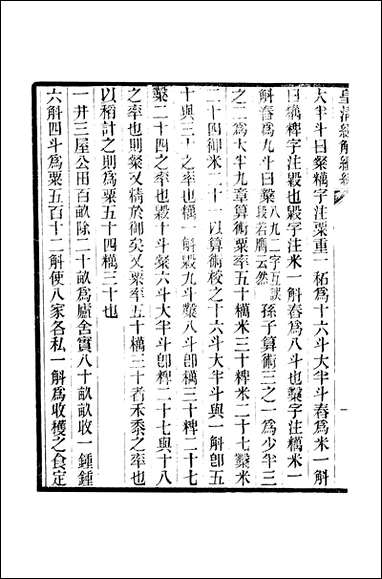 皇清經解續編
大半斗曰粲糲字注粟重一䄷爲十六斗大半斗舂爲米一斛
曰糲粺字注毇也毇字注米一斛舂爲八斗也糳字注糲米一
斛舂爲九斗曰糳八九二字互誤段若膺云然孫子算術三之一爲少半三
之二爲大半九章算術粟率五十糲米三十粺米二十七糳米
二十四御米二十一以算術校之十六斗大半斗與一斛卽五
十與三十之率也糲一斛毇九斗糳八斗卽糲三十粺二十七
糳二十四之率也毇十斗粲六斗大半斗卽粺二十七與十八
之率也則粲又精於御矣又粟率五十糲三十者禾黍之率也
以稻計之則爲粟五十四糲三十也
一井三屋公田百畝除二十畝爲廬舍實八十畝畝收一鍾鍾
六斛四斗爲粟五百十二斛使八家各私一斛爲收穫之食定